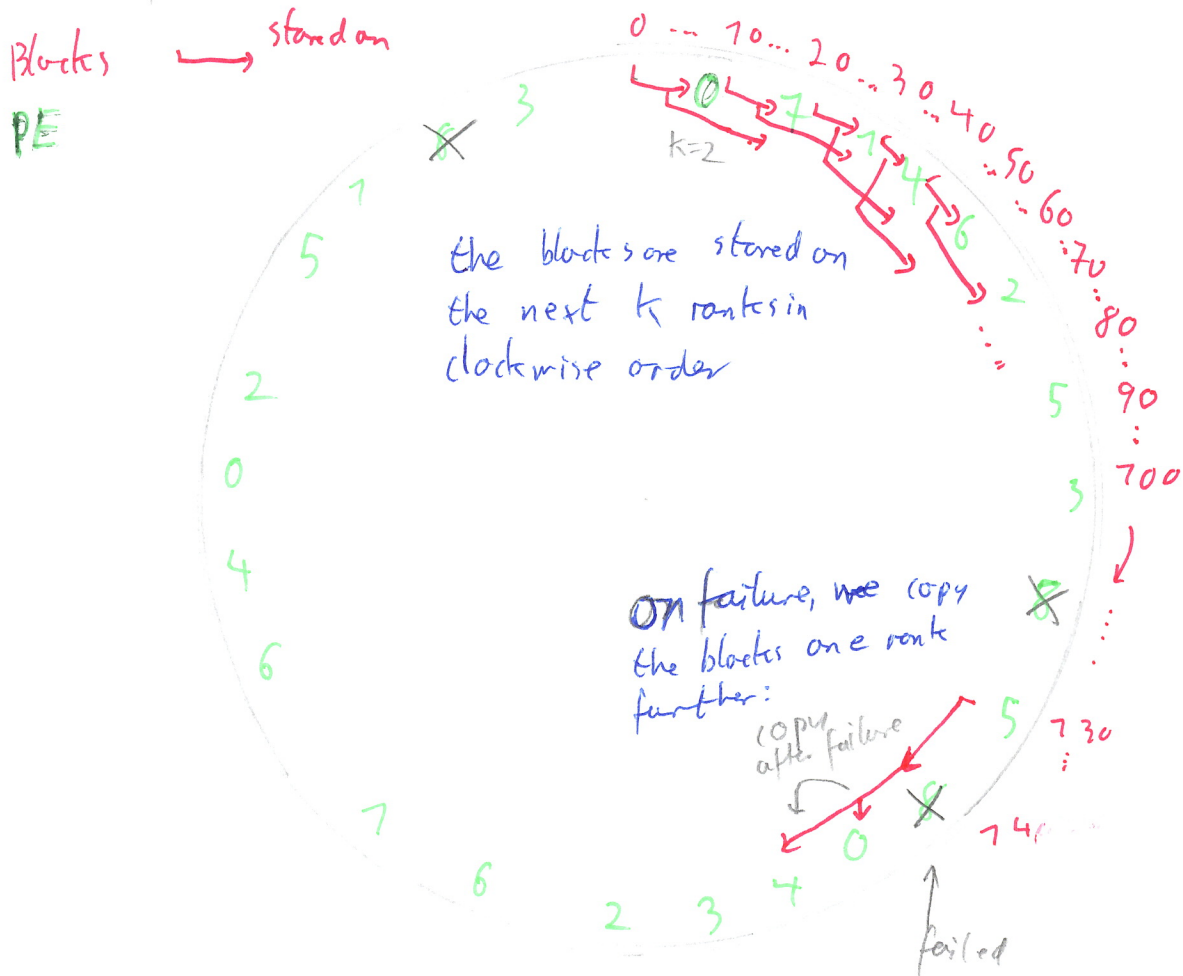 Blocks → stored on
PE
0 ... 10... 20... 30 ... 40 ... 50 ... 60 ... 70 ... 80 ... 90 ... 100
... 130 ...
0 7 1 4 6 2 5 3 8 5 8 0 4 3 2 6
6 4 0 2 5 1 8 3
k=2
the blocks are stored on
the next k ranks in
clockwise order
on failure, we copy
the blocks one rank
further:
copy
after failure
failed